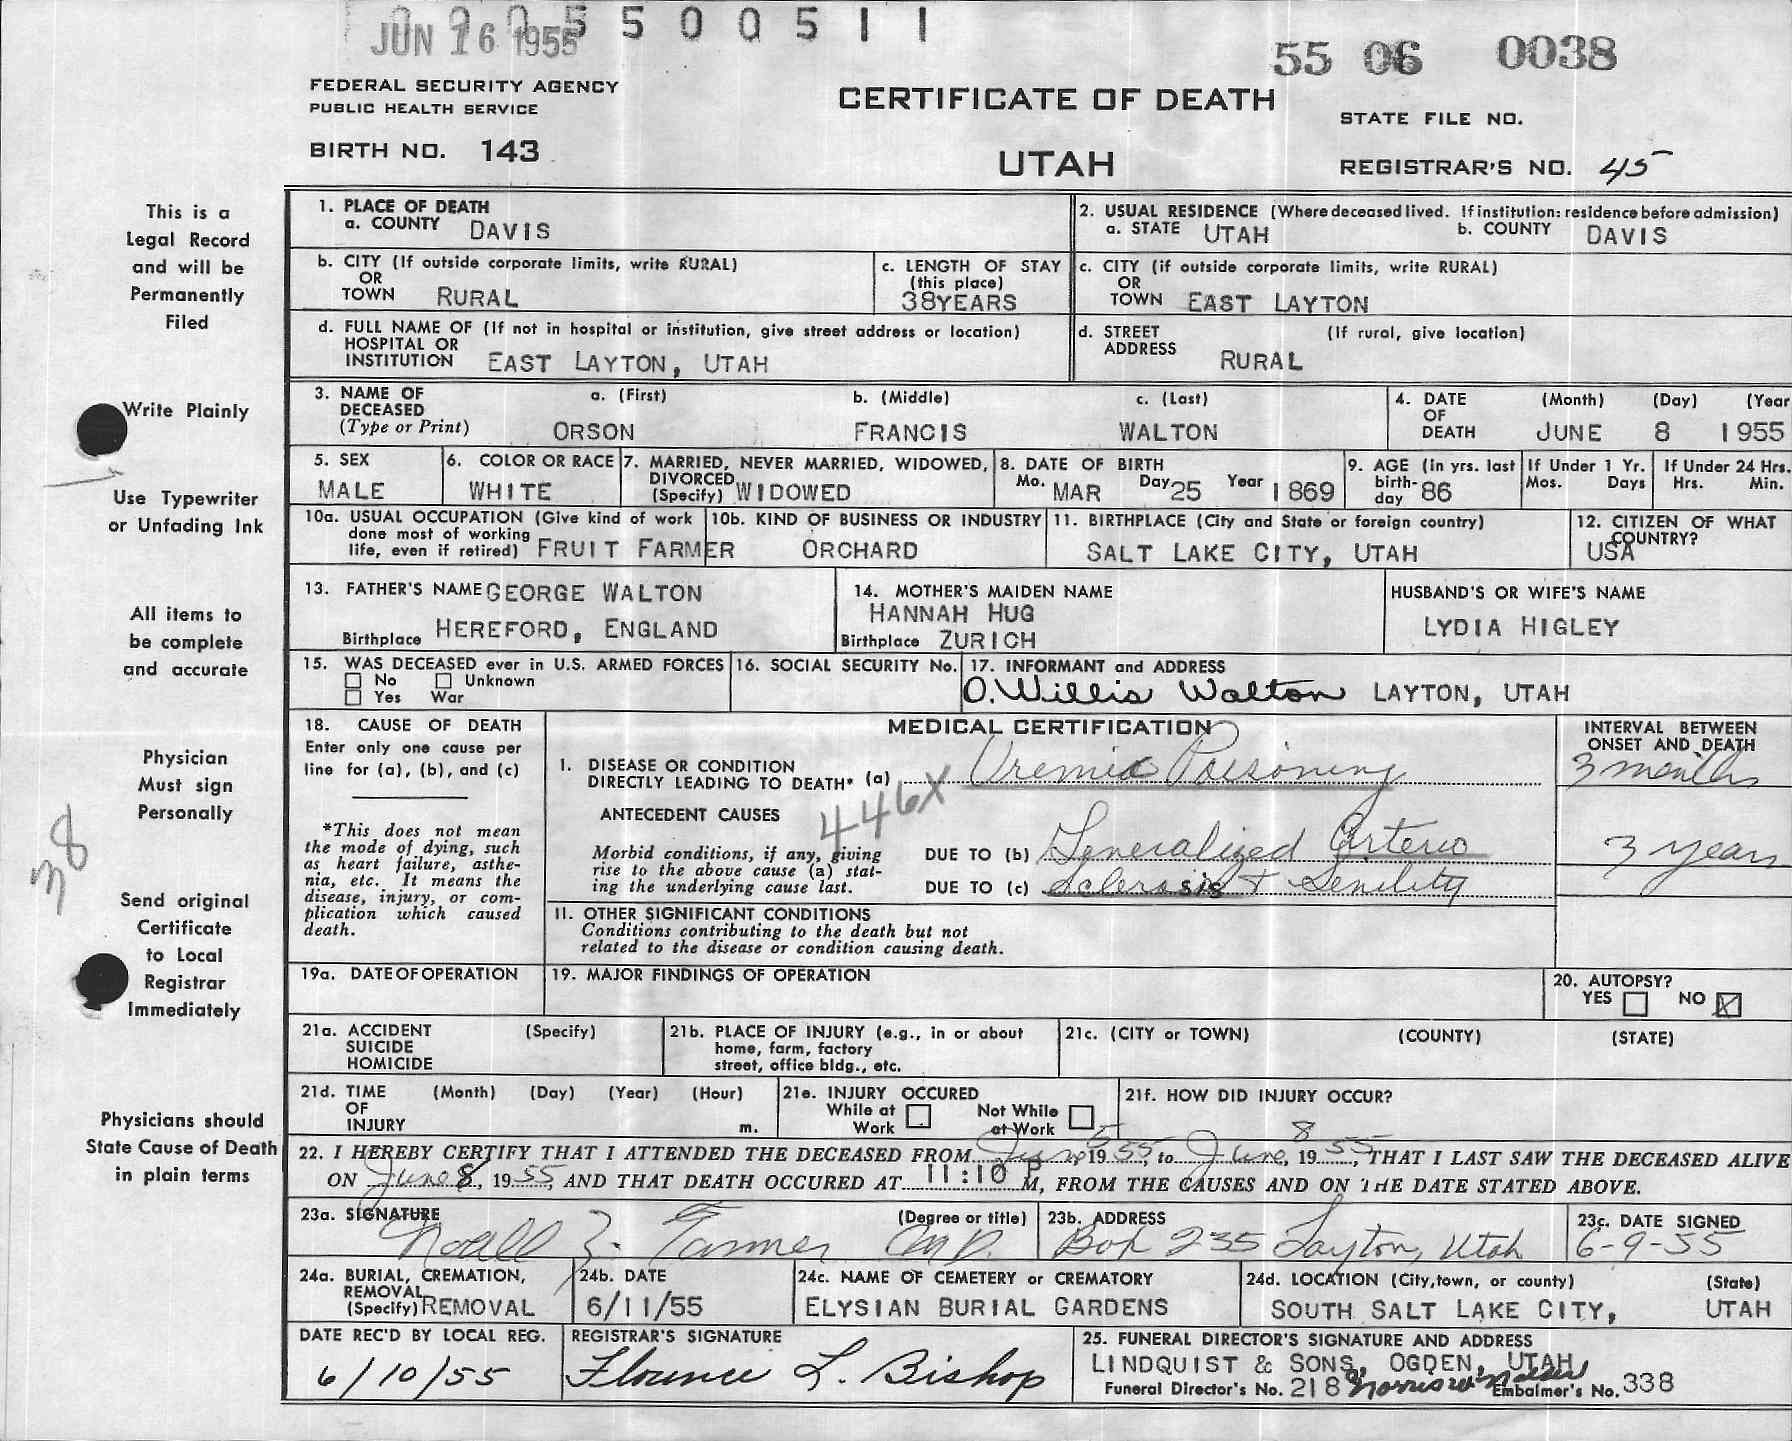 0005500511
JUN 16 1955
55 06 0038
FEDERAL SECURITY AGENCY
PUBLIC HEALTH SERVICE
CERTIFICATE OF DEATH
STATE FILE NO.
BIRTH NO. 143
UTAH
REGISTRAR'S NO. 45
This is a
Legal Record
and will be
Permanently
Filed
Write Plainly
Use Typewriter
or Unfading Ink
All items to
be complete
and accurate
Physician
Must sign
Personally
38
Send original
Certificate
to Local
Registrar
Immediately
Physicians should
State Cause of Death
in plain terms
1. PLACE OF DEATH
a. COUNTY DAVIS
2. USUAL RESIDENCE (Where deceased lived. If institution: residence before admission)
a. STATE UTAH b. COUNTY DAVIS
b. CITY (If outside corporate limits, write RURAL)
OR
TOWN RURAL
c. LENGTH OF STAY
(this place)
38YEARS
c. CITY (if outside corporate limits, write RURAL)
OR
TOWN EAST LAYTON
d. FULL NAME OF (If not in hospital or institution, give street address or location)
HOSPITAL OR
INSTITUTION EAST LAYTON, UTAH
d. STREET (If rural, give location)
ADDRESS RURAL
3. NAME OF DECEASED
(Type or Print)
a. (First) b. (Middle) c. (Last)
ORSON FRANCIS WALTON
4. DATE OF DEATH (Month) (Day) (Year
JUNE 8 1955
5. SEX
MALE
6. COLOR OR RACE
WHITE
7. MARRIED, NEVER MARRIED, WIDOWED,
DIVORCED
(Specify) WIDOWED
8. DATE OF BIRTH
Mo. MAR Day 25 Year 1869
9. AGE (In yrs. last
birth-
day 86
If Under 1 Yr.
Mos. Days
If Under 24 Hrs.
Hrs. Min.
10a. USUAL OCCUPATION (Give kind of work
done most of working
life, even if retired) FRUIT FARMER
10b. KIND OF BUSINESS OR INDUSTRY
ORCHARD
11. BIRTHPLACE (City and State or foreign country)
SALT LAKE CITY, UTAH
12. CITIZEN OF WHAT
COUNTRY?
USA
13. FATHER'S NAME GEORGE WALTON
Birthplace HEREFORD, ENGLAND
14. MOTHER'S MAIDEN NAME
HANNAH HUG
Birthplace ZURICH
HUSBAND'S OR WIFE'S NAME
LYDIA HIGLEY
15. WAS DECEASED ever in U.S. ARMED FORCES
No Unknown
Yes War
16. SOCIAL SECURITY No.
17. INFORMANT and ADDRESS
O. Willis Walton LAYTON, UTAH
18. CAUSE OF DEATH
Enter only one cause per
line for (a), (b), and (c)
*This does not mean
the mode of dying, such
as heart failure, asthe-
nia, etc. It means the
disease, injury, or com-
plication which caused
death.
MEDICAL CERTIFICATION
INTERVAL BETWEEN
ONSET AND DEATH
I. DISEASE OR CONDITION
DIRECTLY LEADING TO DEATH* (a) Uremic Poisoning
3 months
446X
ANTECEDENT CAUSES
Morbid conditions, if any, giving
rise to the above cause (a) stat-
ing the underlying cause last.
DUE TO (b) Generalized Arterio
3 years
DUE TO (c) sclerosis + Senility
II. OTHER SIGNIFICANT CONDITIONS
Conditions contributing to the death but not
related to the disease or condition causing death.
19a. DATE OF OPERATION
19. MAJOR FINDINGS OF OPERATION
20. AUTOPSY?
YES NO X
21a. ACCIDENT (Specify)
SUICIDE
HOMICIDE
21b. PLACE OF INJURY (e.g., in or about
home, farm, factory
street, office bldg., etc.
21c. (CITY or TOWN) (COUNTY) (STATE)
21d. TIME (Month) (Day) (Year) (Hour)
OF
INJURY m.
21e. INJURY OCCURED
While at Work Not While at Work
21f. HOW DID INJURY OCCUR?
22. I HEREBY CERTIFY THAT I ATTENDED THE DECEASED FROM June 5, 1955, to June 8, 1955, THAT I LAST SAW THE DECEASED ALIVE
ON June 8, 1955, AND THAT DEATH OCCURED AT 11:10 P M, FROM THE CAUSES AND ON THE DATE STATED ABOVE.
23a. SIGNATURE (Degree or title)
Noall Z. Tanner M.D.
23b. ADDRESS
Box 235 Layton, Utah
23c. DATE SIGNED
6-9-55
24a. BURIAL, CREMATION,
REMOVAL
(Specify) REMOVAL
24b. DATE
6/11/55
24c. NAME OF CEMETERY or CREMATORY
ELYSIAN BURIAL GARDENS
24d. LOCATION (City, town, or county) (State)
SOUTH SALT LAKE CITY, UTAH
DATE REC'D BY LOCAL REG.
6/10/55
REGISTRAR'S SIGNATURE
Florence L. Bishop
25. FUNERAL DIRECTOR'S SIGNATURE AND ADDRESS
LINDQUIST & SONS, OGDEN, UTAH
Funeral Director's No. 218 Embalmer's No. 338